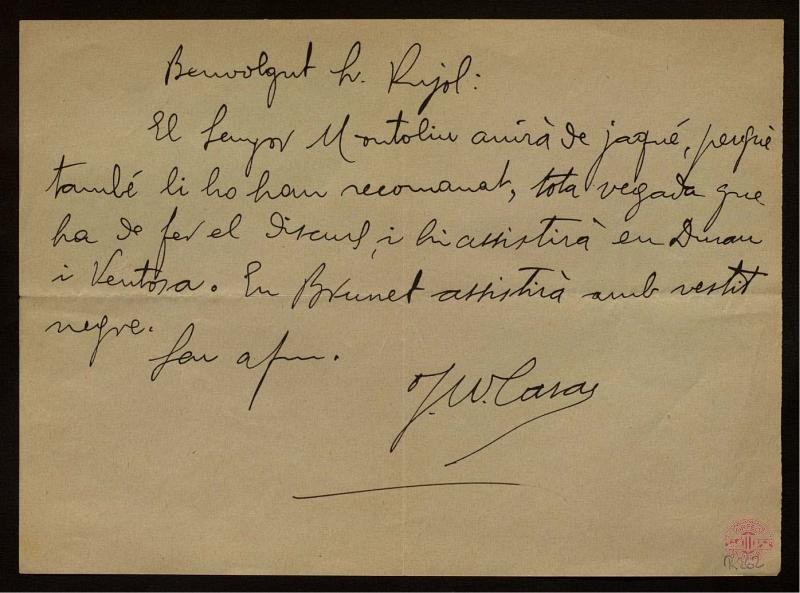 Benvolgut Sr. Pujol:
El Senyor Montoliu anirà de jaqué, perquè
també li ho han recomanat, tota vegada que
ha de fer el discurs, i hi assistirà en Duran
i Ventosa. En Brunet assistirà amb vestit
negre.
Seu afm.
J. W. Casas